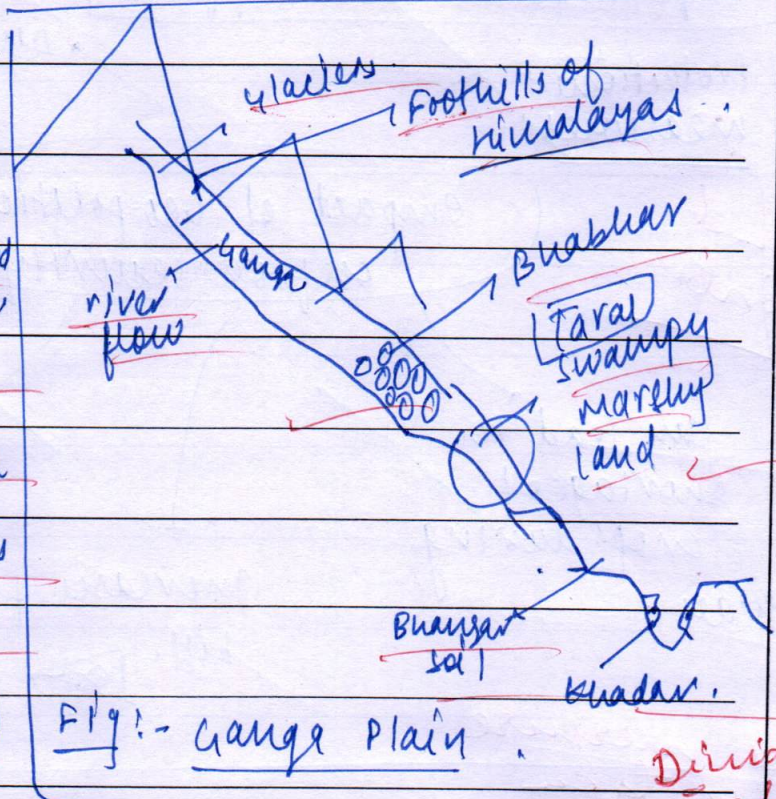 Glaciers
Foothills of
Himalayas.
Ganga
river
flow
Bhabhar
Tarai
swampy
Marshy
land
Bhangar
soil
Khadar.
Fig:- Ganga Plain.